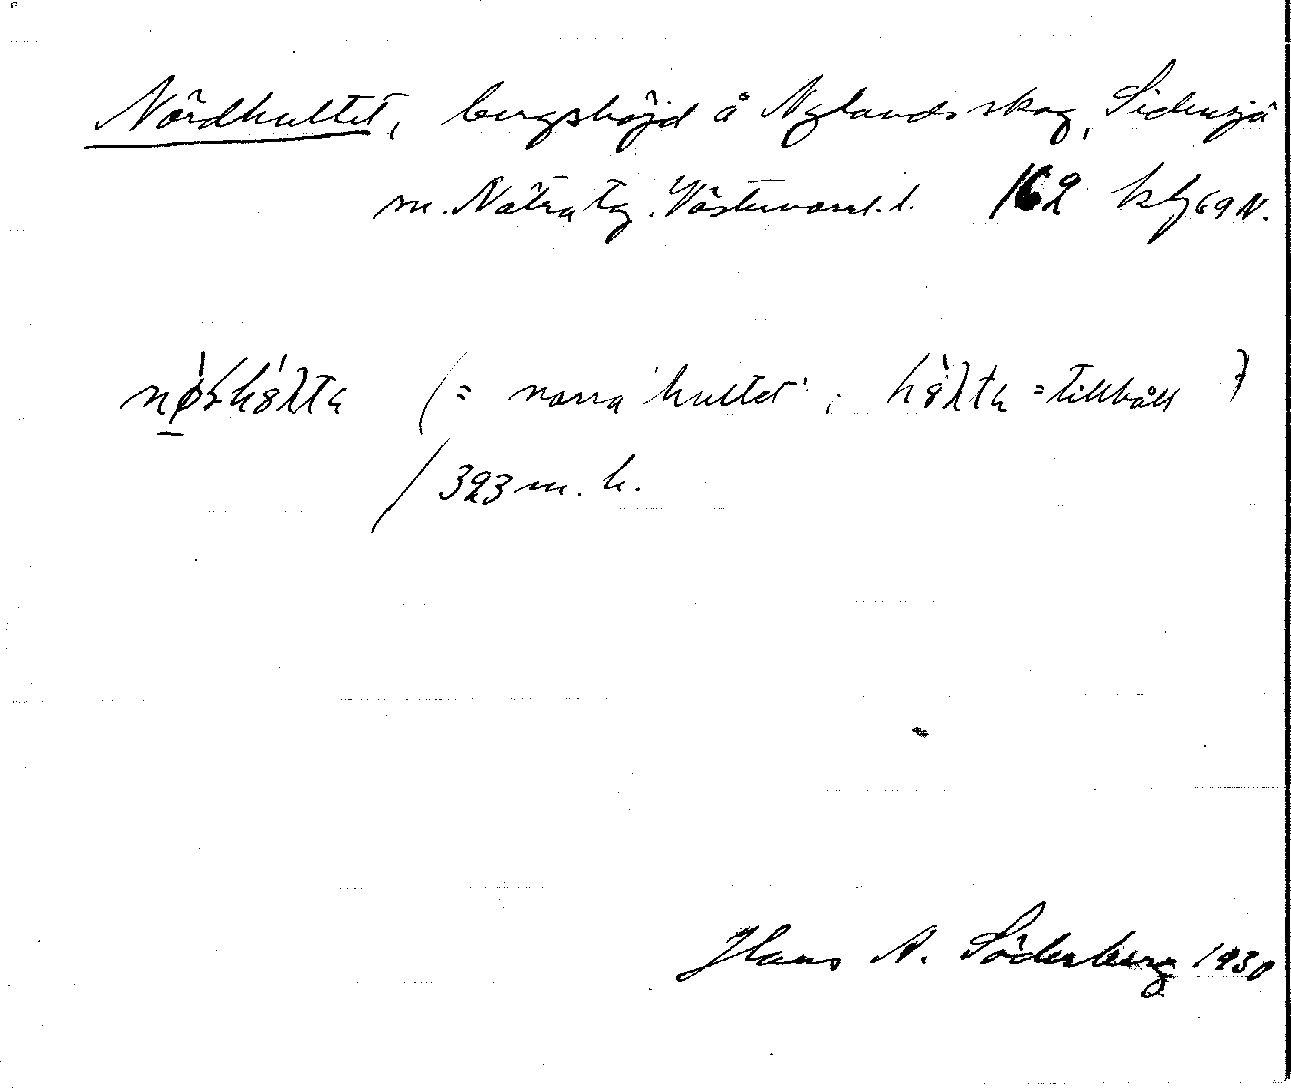 Nördhultet, bergshöjd å Nylands skog, Sidensjö
sn. Nätra tg. Västernorrl. l. 162 kbl 69 N.
(= norra 'hultet', = tillhåll)
/323 m. h.
Hans A. Söderberg 1930